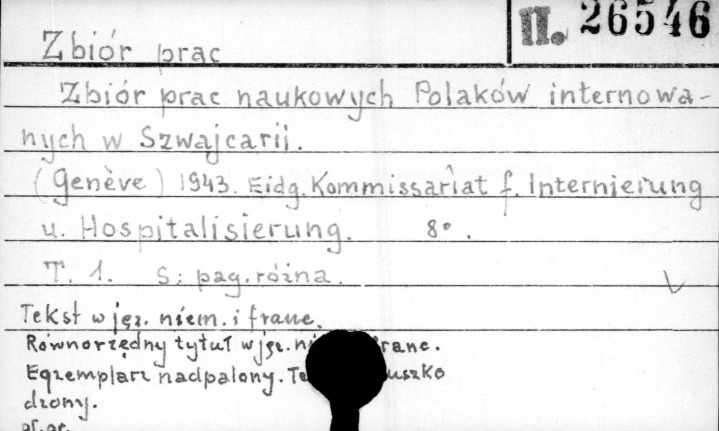 II. 26546
Zbiór prac
Zbiór prac naukowych Polaków internowa-
nych w Szwajcarii.
(Genève) 1943. Eidg. Kommissariat f. Internierung
u. Hospitalisierung. 8º.
T. 1. S: pag. różna.
Tekst w jęz. niem. i franc.
Równorzędny tytuł w jęz. franc.
Egzemplarz nadpalony.
dzony.